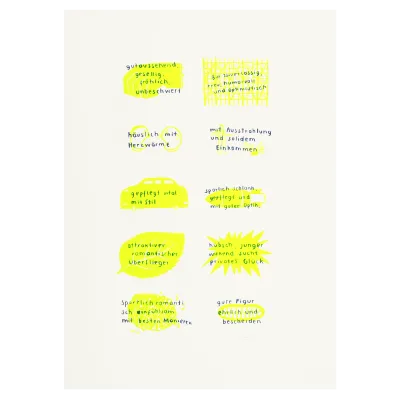 gutaussehend
gesellig,
fröhlich,
unbeschwert
zuverlässig,
humorvoll
und optimistisch
häuslich mit
Herzwärme
mit Ausstrahlung
und solidem
Einkommen
gepflegt vital
mit Stil
sportlich schlank
gepflegt und
mit guter Optik
attraktiver
romantischer
Überflieger
hübsch junger
sucht
privates Glück
Sportlich romanti
sch einfühlsam
mit besten Manieren
gute Figur
ehrlich und
bescheiden